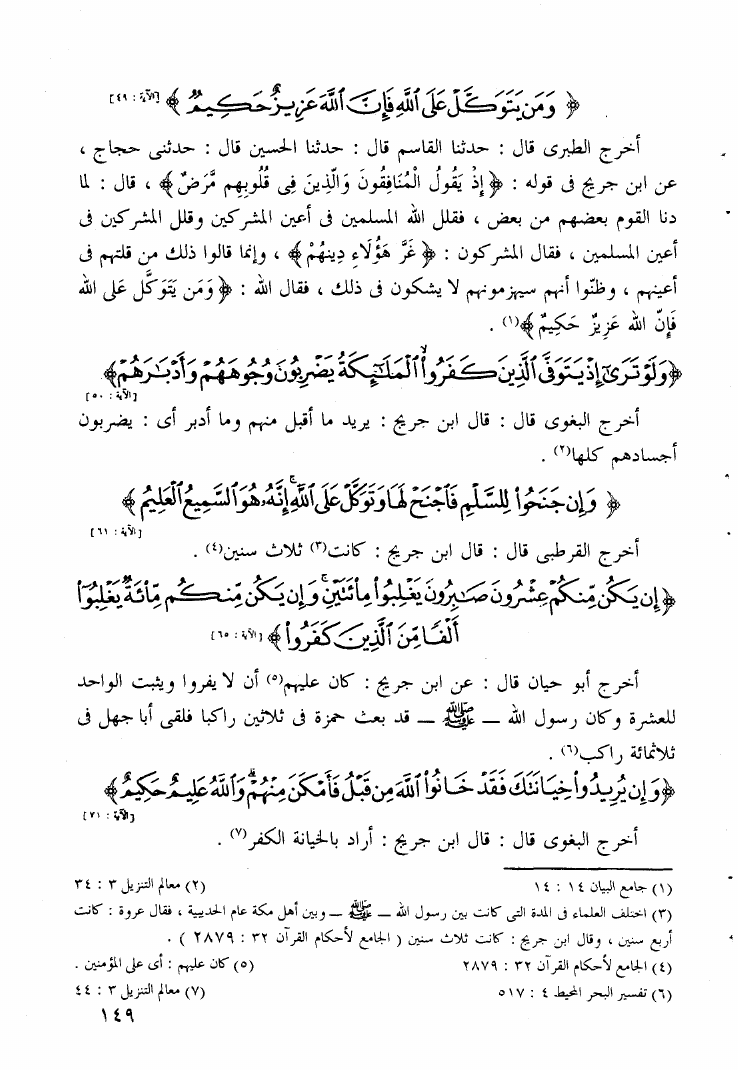 ﴿ وَمَن يَتَوَكَّلْ عَلَى ٱللَّهِ فَإِنَّ ٱللَّهَ عَزِيزٌ حَكِيمٌ ﴾ [الآية : ٤٩]
أخرج الطبرى قال : حدثنا القاسم قال : حدثنا الحسين قال : حدثنى حجاج ،
عن ابن جريج فى قوله : ﴿ إِذْ يَقُولُ الْمُنَافِقُونَ وَالَّذِينَ فِى قُلُوبِهِم مَّرَضٌ ﴾ ، قال : لما
دنا القوم بعضهم من بعض ، فقلل الله المسلمين فى أعين المشركين وقلل المشركين فى
أعين المسلمين ، فقال المشركون : ﴿ غَرَّ هَؤُلَاءِ دِينُهُمْ ﴾ ، وإنما قالوا ذلك من قلتهم فى
أعينهم ، وظنّوا أنهم سيهزمونهم لا يشكون فى ذلك ، فقال الله : ﴿ وَمَن يَتَوَكَّل عَلى الله
فَإِنّ الله عَزِيزٌ حَكِيمٌ ﴾(١) .
﴿ وَلَوْ تَرَىٰٓ إِذْ يَتَوَفَّى ٱلَّذِينَ كَفَرُوا۟ ۙ ٱلْمَلَـٰٓئِكَةُ يَضْرِبُونَ وُجُوهَهُمْ وَأَدْبَـٰرَهُمْ ﴾
[الآية : ٥٠]
أخرج البغوى قال : قال ابن جريج : يريد ما أقبل منهم وما أدبر أى : يضربون
أجسادهم كلها(٢) .
﴿ وَإِن جَنَحُوا۟ لِلسَّلْمِ فَٱجْنَحْ لَهَا وَتَوَكَّلْ عَلَى ٱللَّهِ ۚ إِنَّهُۥ هُوَ ٱلسَّمِيعُ ٱلْعَلِيمُ ﴾
[الآية : ٦١]
أخرج القرطبى قال : قال ابن جريج : كانت(٣) ثلاث سنين(٤) .
﴿ إِن يَكُن مِّنكُمْ عِشْرُونَ صَـٰبِرُونَ يَغْلِبُوا۟ مِا۟ئَتَيْنِ ۚ وَإِن يَكُن مِّنكُم مِّا۟ئَةٌ يَغْلِبُوٓا۟
أَلْفًا مِّنَ ٱلَّذِينَ كَفَرُوا۟ ﴾ [الآية : ٦٥]
أخرج أبو حيان قال : عن ابن جريج : كان عليهم(٥) أن لا يفروا ويثبت الواحد
للعشرة وكان رسول الله ــ ﷺ ــ قد بعث حمزة فى ثلاثين راكبا فلقى أبا جهل فى
ثلاثمائة راكب(٦) .
﴿ وَإِن يُرِيدُوا۟ خِيَانَتَكَ فَقَدْ خَانُوا۟ ٱللَّهَ مِن قَبْلُ فَأَمْكَنَ مِنْهُمْ ۗ وَٱللَّهُ عَلِيمٌ حَكِيمٌ ﴾
[الآية : ٧١]
أخرج البغوى قال : قال ابن جريج : أراد بالخيانة الكفر(٧) .
(١) جامع البيان ١٤ : ١٤ (٢) معالم التنزيل ٣ : ٣٤
(٣) اختلف العلماء فى المدة التى كانت بين رسول الله ــ ﷺ ــ وبين أهل مكة عام الحديبية ، فقال عروة : كانت
أربع سنين ، وقال ابن جريج : كانت ثلاث سنين ( الجامع لأحكام القرآن ٣٢ : ٢٨٧٩ ) .
(٤) الجامع لأحكام القرآن ٣٢ : ٢٨٧٩ (٥) كان عليهم : أى على المؤمنين .
(٦) تفسير البحر المحيط ٤ : ٥١٧ (٧) معالم التنزيل ٣ : ٤٤
١٤٩